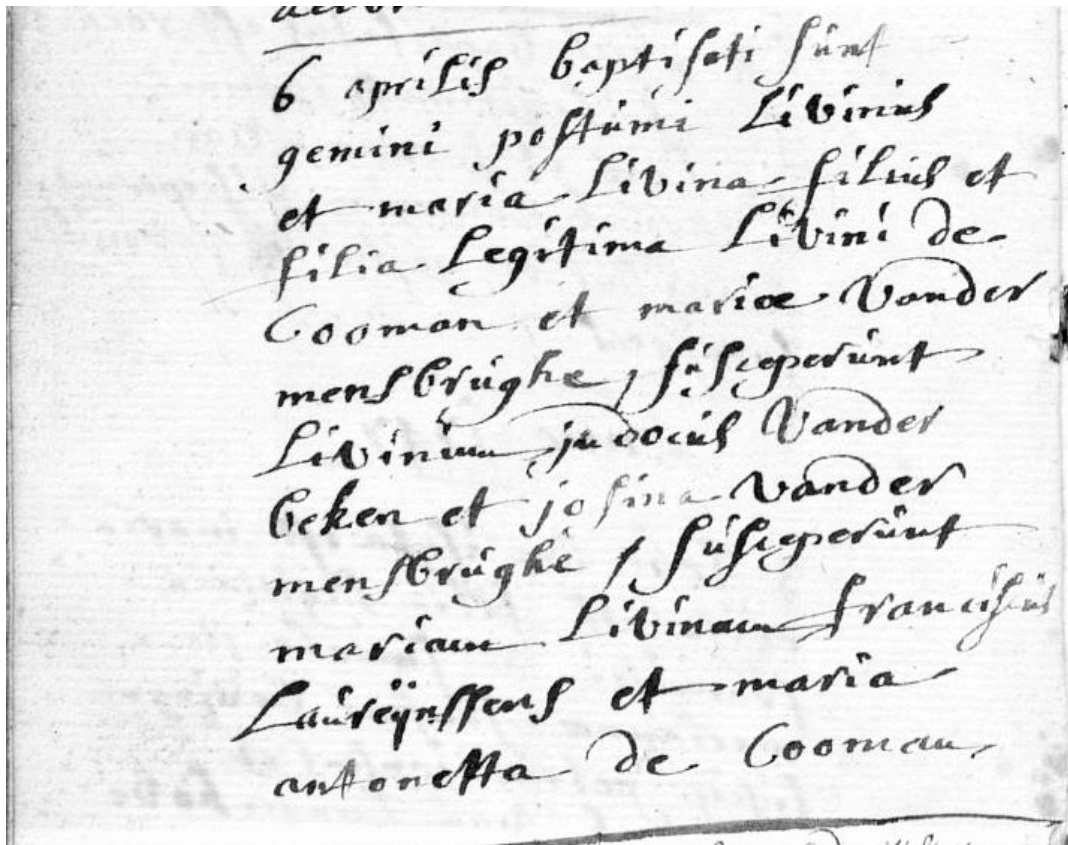 6 aprilis baptisati sunt
gemini postumi Livinus
et maria Livina filius et
filia Legitima Livini de
Cooman et mariæ Vander
mensbrughe, susceperunt
Livinum judocus Vander
beken et josina vander
mensbrughe, susceperunt
mariam Livinam franciscus
Laureÿnssens et maria
antonetta de Cooman